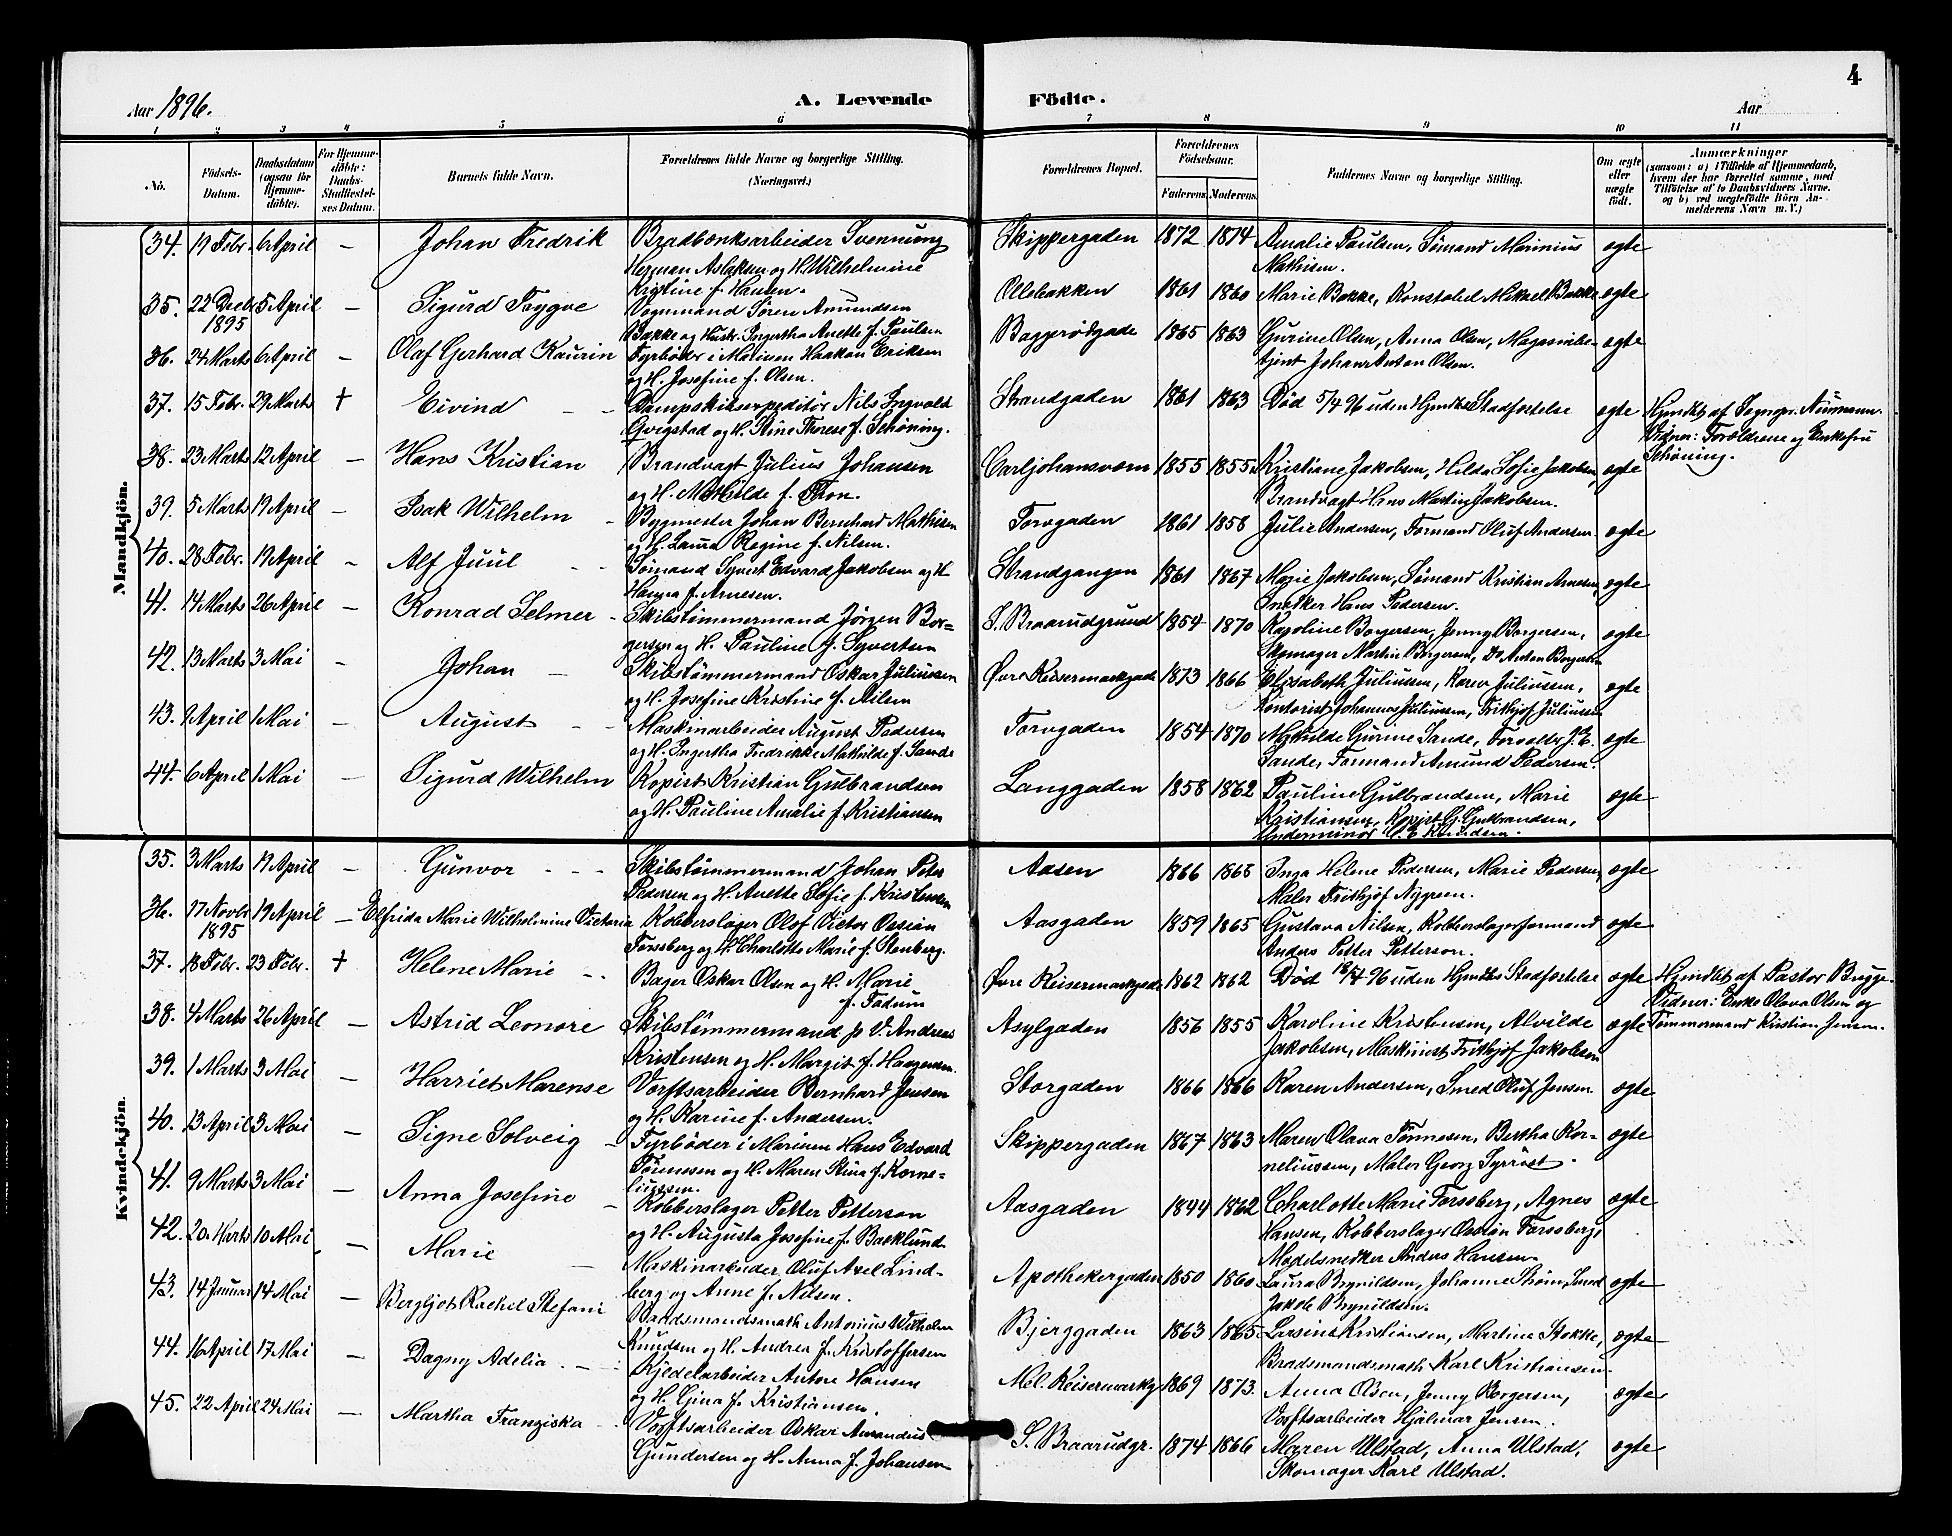 4
Aar 1896.
A. Levende Födte.
Aar
1 2 3 4 5 6 7 8 9 10 11
No.
Födsels-Datum.
Daabsdatum (ogsaa for Hjemme-döbte).
For Hjemme-döbte: Daabs-Stadfæstel-ses Datum.
Barnets fulde Navn.
Forældrenes fulde Navne og borgerlige Stilling. (Næringsvei.)
Forældrenes Bopæl.
Forældrenes Födselsaar.
Faderens. Moderens.
Faddernes Navne og borgerlige Stilling.
Om ægte eller uægte födt.
Anmærkninger
(saasom: a) i Tilfælde af Hjemmedaab, hvem der har forrettet samme, med Tilföielse af to Daabsvidners Navne, og b) ved uægtefödte Börn Anmelderens Navn m. V.)
Mandkjön.
34. 19 Febr. 6 April — Johan Fredrik Bradbænksarbeider Svennung Skippergaden 1872 1874 Amalie Paulsen, Sömand Marinius ægte
Herman Aslaksen og H. Wilhelmine Mathisen.
Kristine f. Hansen.
35. 22 Decb. 5 April — Sigurd Trygve Vognmand Sören Amundsen Ollebakken 1861 1860 Marie Bakke, Konstabel Mikael Bakke ægte
1895 Bakke og Hustr. Ingertha Anette f. Paulsen
36. 24 Marts 6 April — Olaf Gerhard Kaurin Fyrböder i Marinen Haakon Eriksen Baggerödgade 1865 1863 Gurine Olsen, Anna Olsen, Magasinbe- ægte
og H. Josefine f. Olsen. tjent Johan Anton Olsen.
37. 15 Febr. 29 Marts † Eivind Dampskibsexpeditör Nils Ingvald Strandgaden 1861 1863 Död 5/4 96 uden Hjmdbs Stadfæstelse ægte Hjmdbt af Sognepr. Neumann.
Gvigstad og H. Stine Therese f. Schöning. Vidner: Forældrene og Enkefru
Schöning.
38. 23 Marts 12 April — Hans Kristian Brandvagt Julius Johansen Carljohansværn 1855 1855 Kristiane Jakobsen, Hilda Sofie Jakobsen, ægte
og H. Mathilde f. Thon. Brandvagt Hans Martin Jakobsen.
39. 5 Marts 19 April — Isak Wilhelm Bygmester Johan Bernhard Mathisen Torvgaden 1861 1858 Julie Andersen, Formand Oluf Andersen ægte
og H. Laura Regine f. Nilsen.
40. 28 Febr. 19 April — Alf Juul Sömand Syvert Edvard Jakobsen og H. Strandgangen 1861 1867 Marie Jakobsen, Sömand Kristian Arnesen, ægte
Hanna f. Arnesen. Snekker Hans Pedersen.
41. 14 Marts 26 April — Konrad Selmer Skibstömmermand Jörgen Bor- S. Braarudgrund 1854 1870 Karoline Borgersen, Jenny Borgersen, ægte
gersen og H. Pauline f. Syvertsen Skomager Martin Borgersen, Do Anton Borgersen
42. 13 Marts 3 Mai — Johan Skibstömmermand Oskar Juliussen Övre Keisermarkgade 1873 1866 Elisabeth Juliussen, Karen Juliussen, ægte
og H. Josefine Kristine f. Nilsen Kontorist Johannes Juliussen, Frithjof Juliussen
43. 9 April 1 Mai — August Maskinarbeider August Pedersen Torvgaden 1854 1870 Mathilde Gurine Sande, Forvalter J. E. ægte
og H. Ingertha Fredrikke Mathilde f. Sande Sande, Formand Amund Pedersen.
44. 6 April 1 Mai — Sigurd Wilhelm Kopist Kristian Gulbrandsen Langgaden 1858 1862 Pauline Gulbrandsen, Marie ægte
og H. Pauline Amalie f. Kristiansen Kristiansen, Kopist G. Gulbrandsen,
Underminör
Kvindekjön.
35. 3 Marts 19 April — Gunvor Skibstömmermand Johan Peter Aasen 1866 1868 Inga Helene Pedersen, Marie Pedersen, ægte
Pedersen og H. Anette Sofie f. Kristensen Maler Frithjof Nygreen.
36. 17 Novbr 19 April — Elfrida Marie Wilhelmine Victoria Kobberslager Olof Victor Ossian Aasgaden 1859 1865 Gustava Nilsen, Kobberslagerformand ægte
1895 Forssberg og H. Charlotte Marie f. Stenberg. Anders Petter Petterson.
37. 18 Febr. 23 Febr. † Helene Marie Bager Oskar Olsen og H. Marie Övre Keisermarkgade 1862 1862 Död 12/4 96 uden Hjmdbs Stadfæstelse ægte Hjmdbt af Pastor Brügge.
f. Fadum Vidner: Enke Olava Olsen og
Tömmermand Kristian Jensen.
38. 4 Marts 26 April — Astrid Leonore Skibstömmermand p. V. Andreas Asylgaden 1856 1855 Karoline Kristensen, Alvilde ægte
Kristensen og H. Margit f. Haagensen. Jakobsen, Maskinist Frithjof Jakobsen
39. 1 Marts 3 Mai — Harriet Marense Værftsarbeider Bernhard Jensen Storgaden 1866 1866 Karen Andersen, Smed Oluf Jensen ægte
og H. Karine f. Andersen.
40. 13 April 3 Mai — Signe Solveig Fyrböder i Marinen Hans Edvard Skippergaden 1867 1863 Maren Olava Tönnesen, Bertha Kor- ægte
Tönnesen og H. Maren Stina f. Korne- neliussen, Maler Georg Syvröst.
liussen.
41. 9 Marts 3 Mai — Anna Josefine Kobberslager Petter Petterson Aasgaden 1844 1862 Charlotte Marie Forssberg, Agnes ægte
og H. Augusta Josefine f. Backlund Hansen, Kobberslager Ossian Forssberg,
Modelsnedker Anders Hansen.
42. 20 Marts 10 Mai — Marie Maskinarbeider Oluf Axel Lind- Apothekergaden 1850 1860 Laura Brynildsen, Johanne Ström, Smed ægte
berg og Anne f. Nilsen. Jakob Brynildsen.
43. 14 Januar 14 Mai — Bergljot Rachel Stefani Baadsmandsmath Antonius Wilhelm Bjerggaden 1863 1865 Larsine Kristiansen, Martine Stokke, ægte
Knudsen og H. Andrea f. Kristoffersen Baadsmandsmath Karl Kristiansen.
44. 16 April 17 Mai — Dagny Adelia Kjedelarbeider Anton Hansen Mel. Keisermarkg 1869 1873. Anna Olsen, Jenny Borgersen, ægte
og H. Gina f. Kristiansen. Værftsarbeider Hjalmar Jensen.
45. 22 April 24 Mai — Martha Franziska Værftsarbeider Oskar Amandus S. Braarudgr. 1874 1866 Maren Ulstad, Anna Ulstad, ægte
Gundersen og H. Anna f. Johansen Skomager Karl Ulstad.